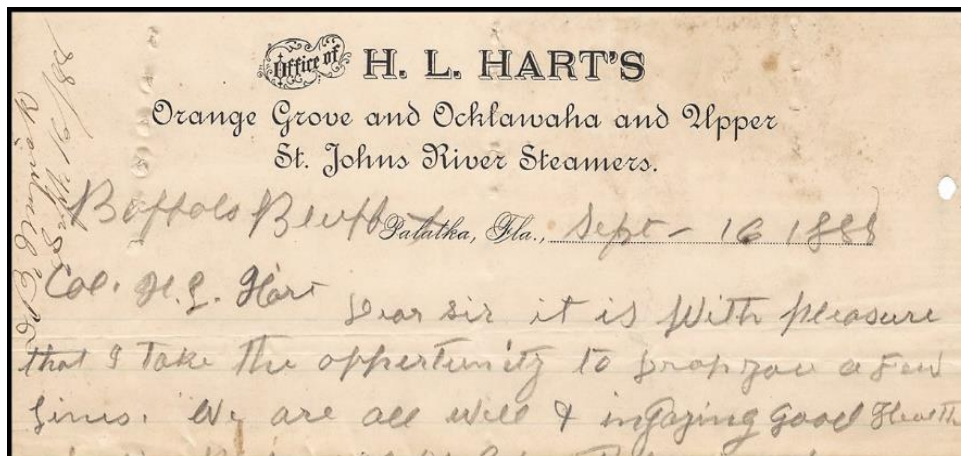 Office of H. L. HART'S
Orange Grove and Ocklawaha and Upper
St. Johns River Steamers.
Buffolo Bluff Palatka, Fla., Sept - 16 1888
Col. H. L. Hart Dear sir it is With pleasure
that I Take the oppertunity to drop you a few
Lines. We are all well & ingoying good Health